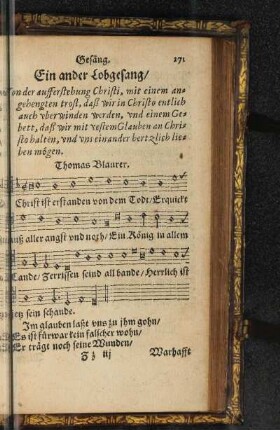 Gesäng. 171
Ein ander Lobgesang/
Von der aufferstehung Christi, mit einem an-
gehengten trost, daß wir in Christo entlich
auch vberwinden werden, vnd einem Ge-
bett, daß wir mit vestem Glauben an Chri-
sto halten, vnd vns einander hertzlich lie-
ben mögen.
Thomas Blaurer.
Christ ist erstanden von dem Todt/ Erquickt
auß aller angst vnd noth/ Ein König in allem
Lande/ Zerrissen seind all bande/ Herrlich ist
jetz sein schande.
Im glauben laßt vns zu jhm gohn/
Es ist fürwar kein falscher wohn/
Er trägt noch seine Wunden/
Z z iij Warhafft